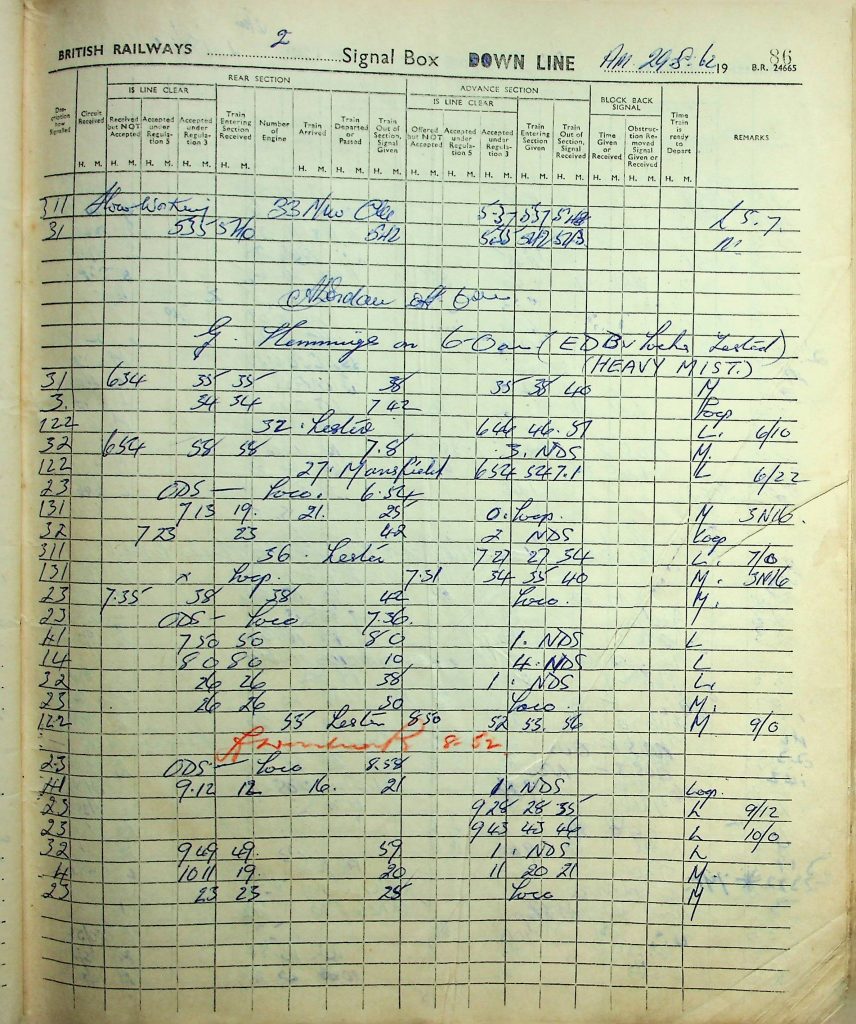 BRITISH RAILWAYS 2 Signal Box DOWN LINE AM 19 86
B.R. 24665
REAR SECTION ADVANCE SECTION
IS LINE CLEAR IS LINE CLEAR BLOCK BACK SIGNAL
Description how Signalled Circuit Received Received but NOT Accepted Accepted under Regulation 5 Accepted under Regulation 3 Train Entering Section Received Number of Engine Train Arrived Train Departed or Passed Train Out of Section, Signal Given Offered but NOT Accepted Accepted under Regulation 5 Accepted under Regulation 3 Train Entering Section Given Train Out of Section, Signal Received Time Given or Received Obstruction Removed Signal Given or Received Time Train is ready to Depart REMARKS
H. M. H. M. H. M. H. M. H. M. H. M. H. M. H. M. H. M. H. M. H. M. H. M. H. M. H. M. H. M.
311 Working 33 537 537 L 5.7.
31 535 5/40 5/42
off 6am
G. Hemmings on 6-0am (EDBv Locks Tested)
(HEAVY MIST.)
31 634 35 35 38 35 38 40 M
3. 34 34 7 42 Loop
122 32. Lester 644 46. 51 L. 6/10
32 654 58 58 7.8 3. NDS M.
122 27. Mansfield 654 54 7.1 L 6/22
23 ODS — Loco. 6.54
131 7 13 19. 21. 25 0. Loop. M 3N16.
32 7 23 23 42 2 NDS Loop
311 36. Lester 7 27 27 34 L. 7/0
131 x Loop. 7.31 34 35 40 M. 3N16
23 7.35 38 38 42 Loco. M.
23 ODS - Loco 7.36.
41 7 50 50 8 0 1. NDS L
14 8 0 8 0 10 4. NDS L
32 26 26 38 1. NDS L.
23 26 26 30 Loco. M.
122 53 Lester 8.50 52 53. 56 M 9/0
8-52
23 ODS — Loco 8.58
41 9.12 12 16. 21 1. NDS Loop.
23 9 28 28 35 L 9/12
23 9 43 43 46 L 10/0
32 9 49 49. 59 1. NDS L
4 10 11 19. 20 11 20 21 M.
23 23 23 25 Loco M